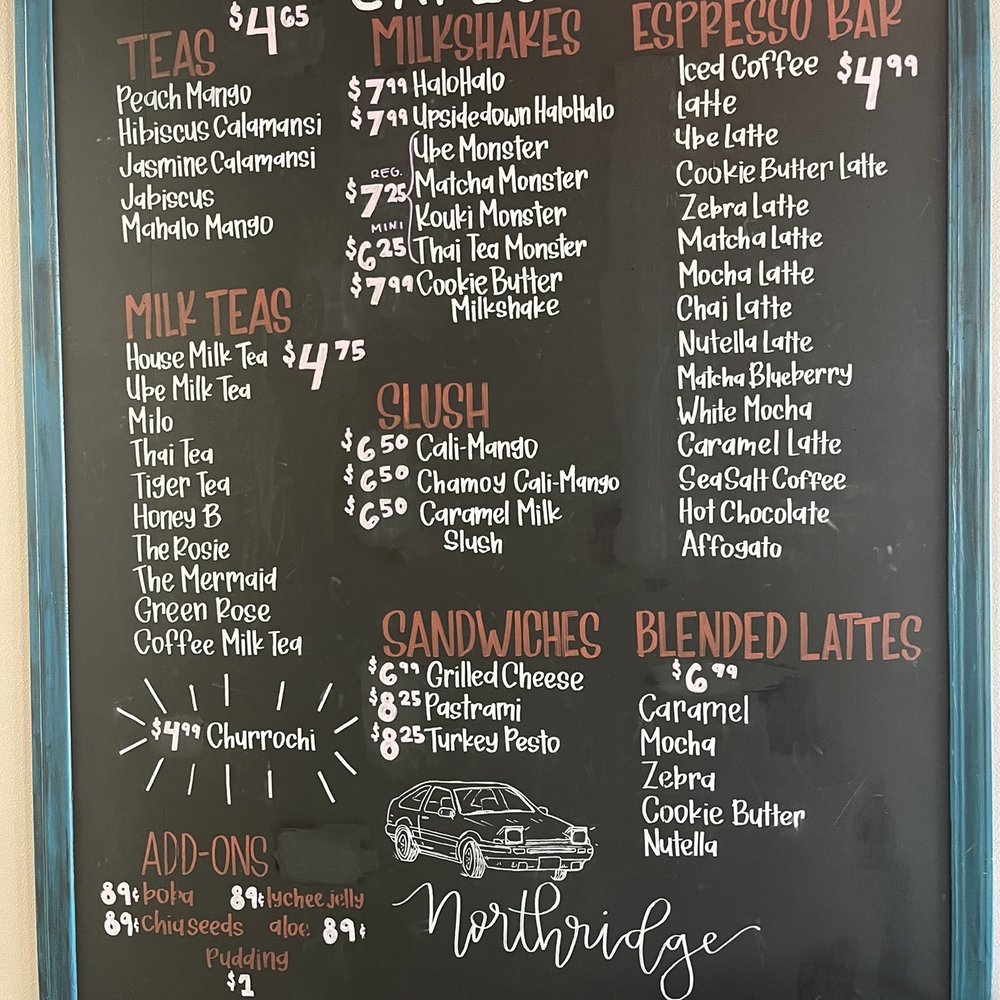 TEAS $4.65
Peach Mango
Hibiscus Calamansi
Jasmine Calamansi
Jabiscus
Mahalo Mango
MILK TEAS
House Milk Tea $4.75
Ube Milk Tea
Milo
Thai Tea
Tiger Tea
Honey B
The Rosie
The Mermaid
Green Rose
Coffee Milk Tea
$4.99 Churrochi
ADD-ONS
89¢ boba 89¢ lychee jelly
89¢ Chia seeds aloe 89¢
Pudding
$1
MILKSHAKES
$7.99 HaloHalo
$7.99 Upsidedown HaloHalo
Ube Monster
REG.
$7.25 Matcha Monster
MINI Kouki Monster
$6.25 Thai Tea Monster
$7.99 Cookie Butter
Milkshake
SLUSH
$6.50 Cali-Mango
$6.50 Chamoy Cali-Mango
$6.50 Caramel Milk
Slush
SANDWICHES
$6.99 Grilled Cheese
$8.25 Pastrami
$8.25 Turkey Pesto
Northridge
ESPRESSO BAR
Iced Coffee $4.99
Latte
Ube Latte
Cookie Butter Latte
Zebra Latte
Matcha Latte
Mocha Latte
Chai Latte
Nutella Latte
Matcha Blueberry
White Mocha
Caramel Latte
Sea Salt Coffee
Hot Chocolate
Affogato
BLENDED LATTES
$6.99
Caramel
Mocha
Zebra
Cookie Butter
Nutella